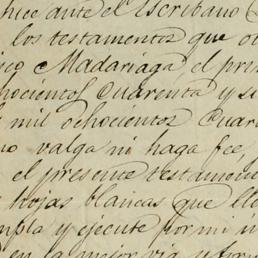 hice ante el Escribano
los testamentos que ot
co Madariaga, el pri
hocientos Cuarenta y s
mil ochocientos Cuar
no valga ni haga fée,
el presente testamento
hojas blancas que lle
mpla y ejecute por mi u
en la mejor via y for